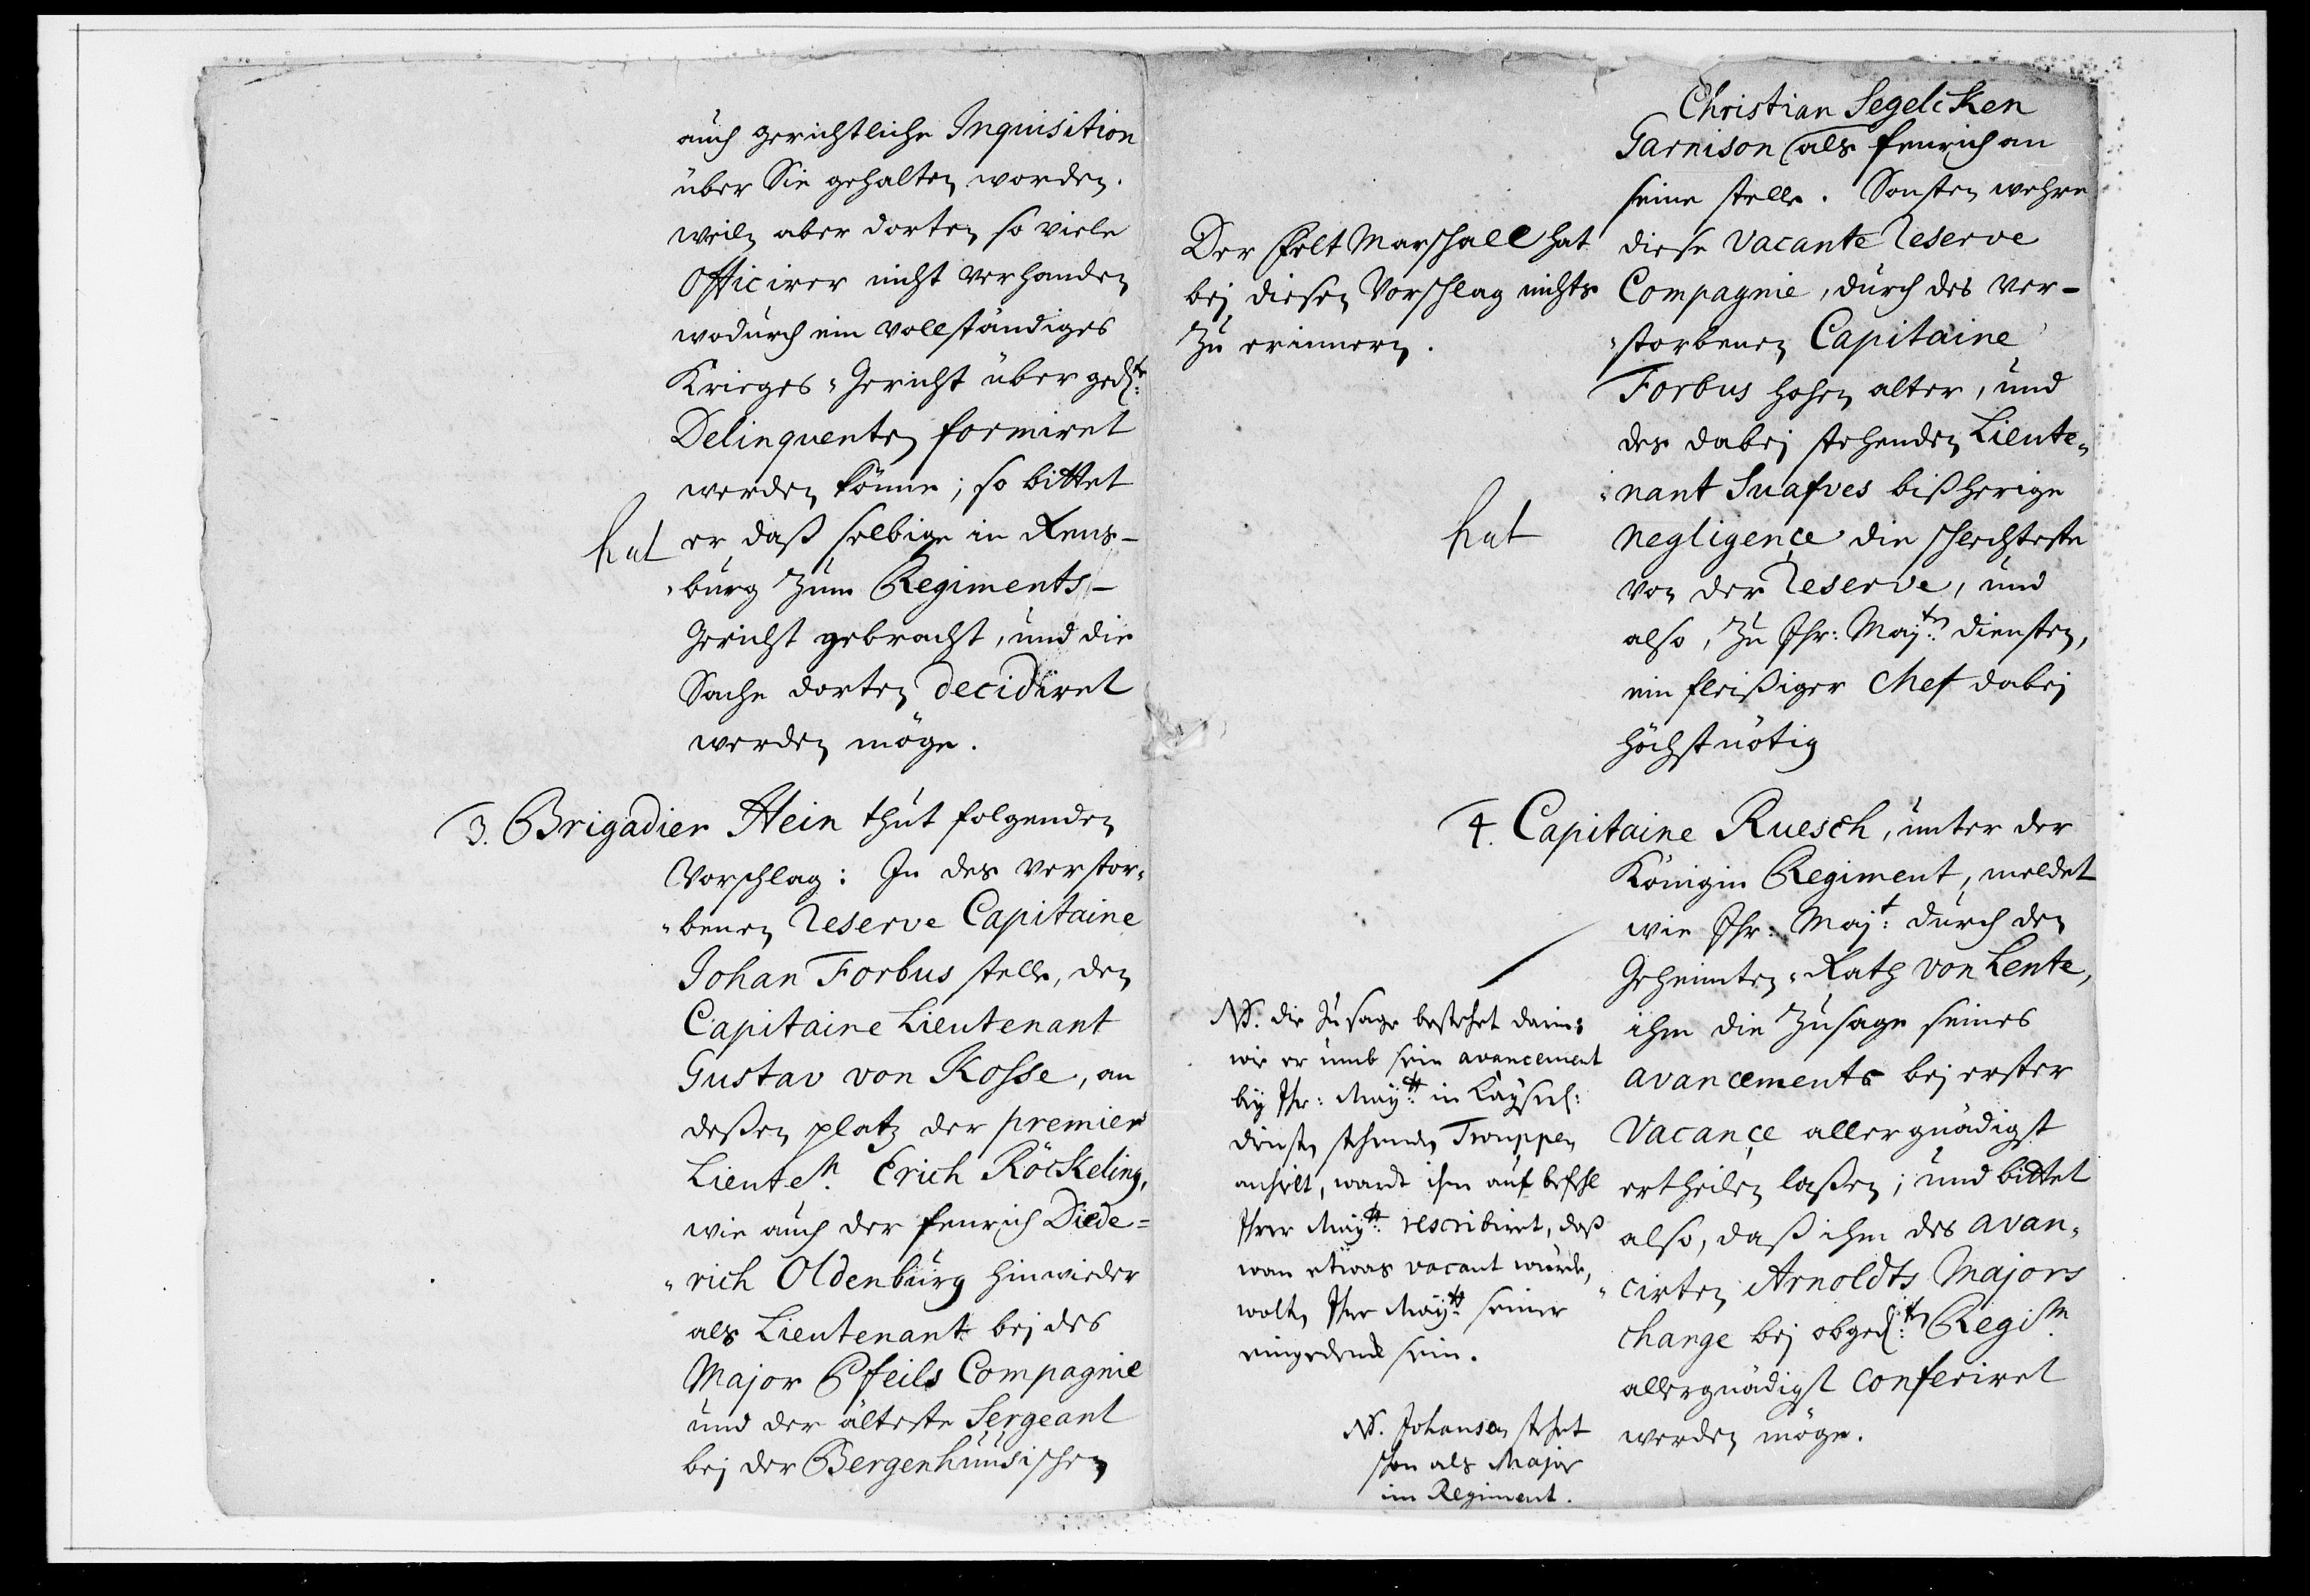 auch gerichtliche Inquisition
über Sie gehalten worden.
weiln aber dorten so viele
Officirer nicht verhanden
wodurch ein vollständiges
Krieges-Gericht über gedˢ:ᵗᵉ
Delinquenten formiret
werden könne; so bittet
hat
er daß selbige in Rens-
burg zum Regiments-
Gericht gebracht, und die
Sache dorten decidiret
werden möge.
3. Brigadier Hein thut folgenden
Vorschlag: In des verstor-
benen Reserve Capitaine
Johan Forbus stelle, den
Capitaine Lieutenant
Gustav von Kosse, an
deßen platz der premier
Lieuteⁿ: Erich Röckeling,
wie auch der fenrich Diede=
rich Oldenburg hinwieder
als Lieutenant bej des
Major Pfeils Compagnie
und der älteste Sergeant
bej der Bergenhuusischen
Christian Segelcken
Garnison als fenrich an
seine stelle. Sonsten wehre
diese Vacante Reserve
Compagnie, durch des ver-
storbenen Capitaine
Forbus hohen alter, und
des dabej stehenden Lieute-
nant Suafves bißherige
negligençe die schlechteste
von der Reserve, und
also, zu Ihr: Majᵗⁿ: diensten,
ein fleißiger Chef dabej
höchstnötig
Der Felt Marschall hat
bej diesen Vorschlag nichts
zu erinnern.
hat
4. Capitaine Ruesch, unter der
Königin Regiment, meldet
wie Ihr: Majᵗ: durch den
Geheimten-Rath von Lente,
ihm die Zusage seines
avancements bej erster
Vacançe allergnädigst
ertheilen laßen; und bittet
also, daß ihm des avan-
cirten Arnoldts Majors
charge bej obgedˢ:ᵗⁿ Regiᵐ:
allergnädigst conferiret
werden möge.
NB. die Zusage bestehet darin:
wie er umb sein avancement
bey Ihr: Mayᵗᵗ: in Kaysˡ:
diensten stehende Trouppen
anhielt, wardt ihm auf befehl
Ihrer Mayᵗᵗ: rescribiret, daß
wan etwas vacant würde,
wolten Ihre Mayᵗᵗ: seiner
eingedenck sein.
NB. Johansen stehet
schon als Major
im Regiment.